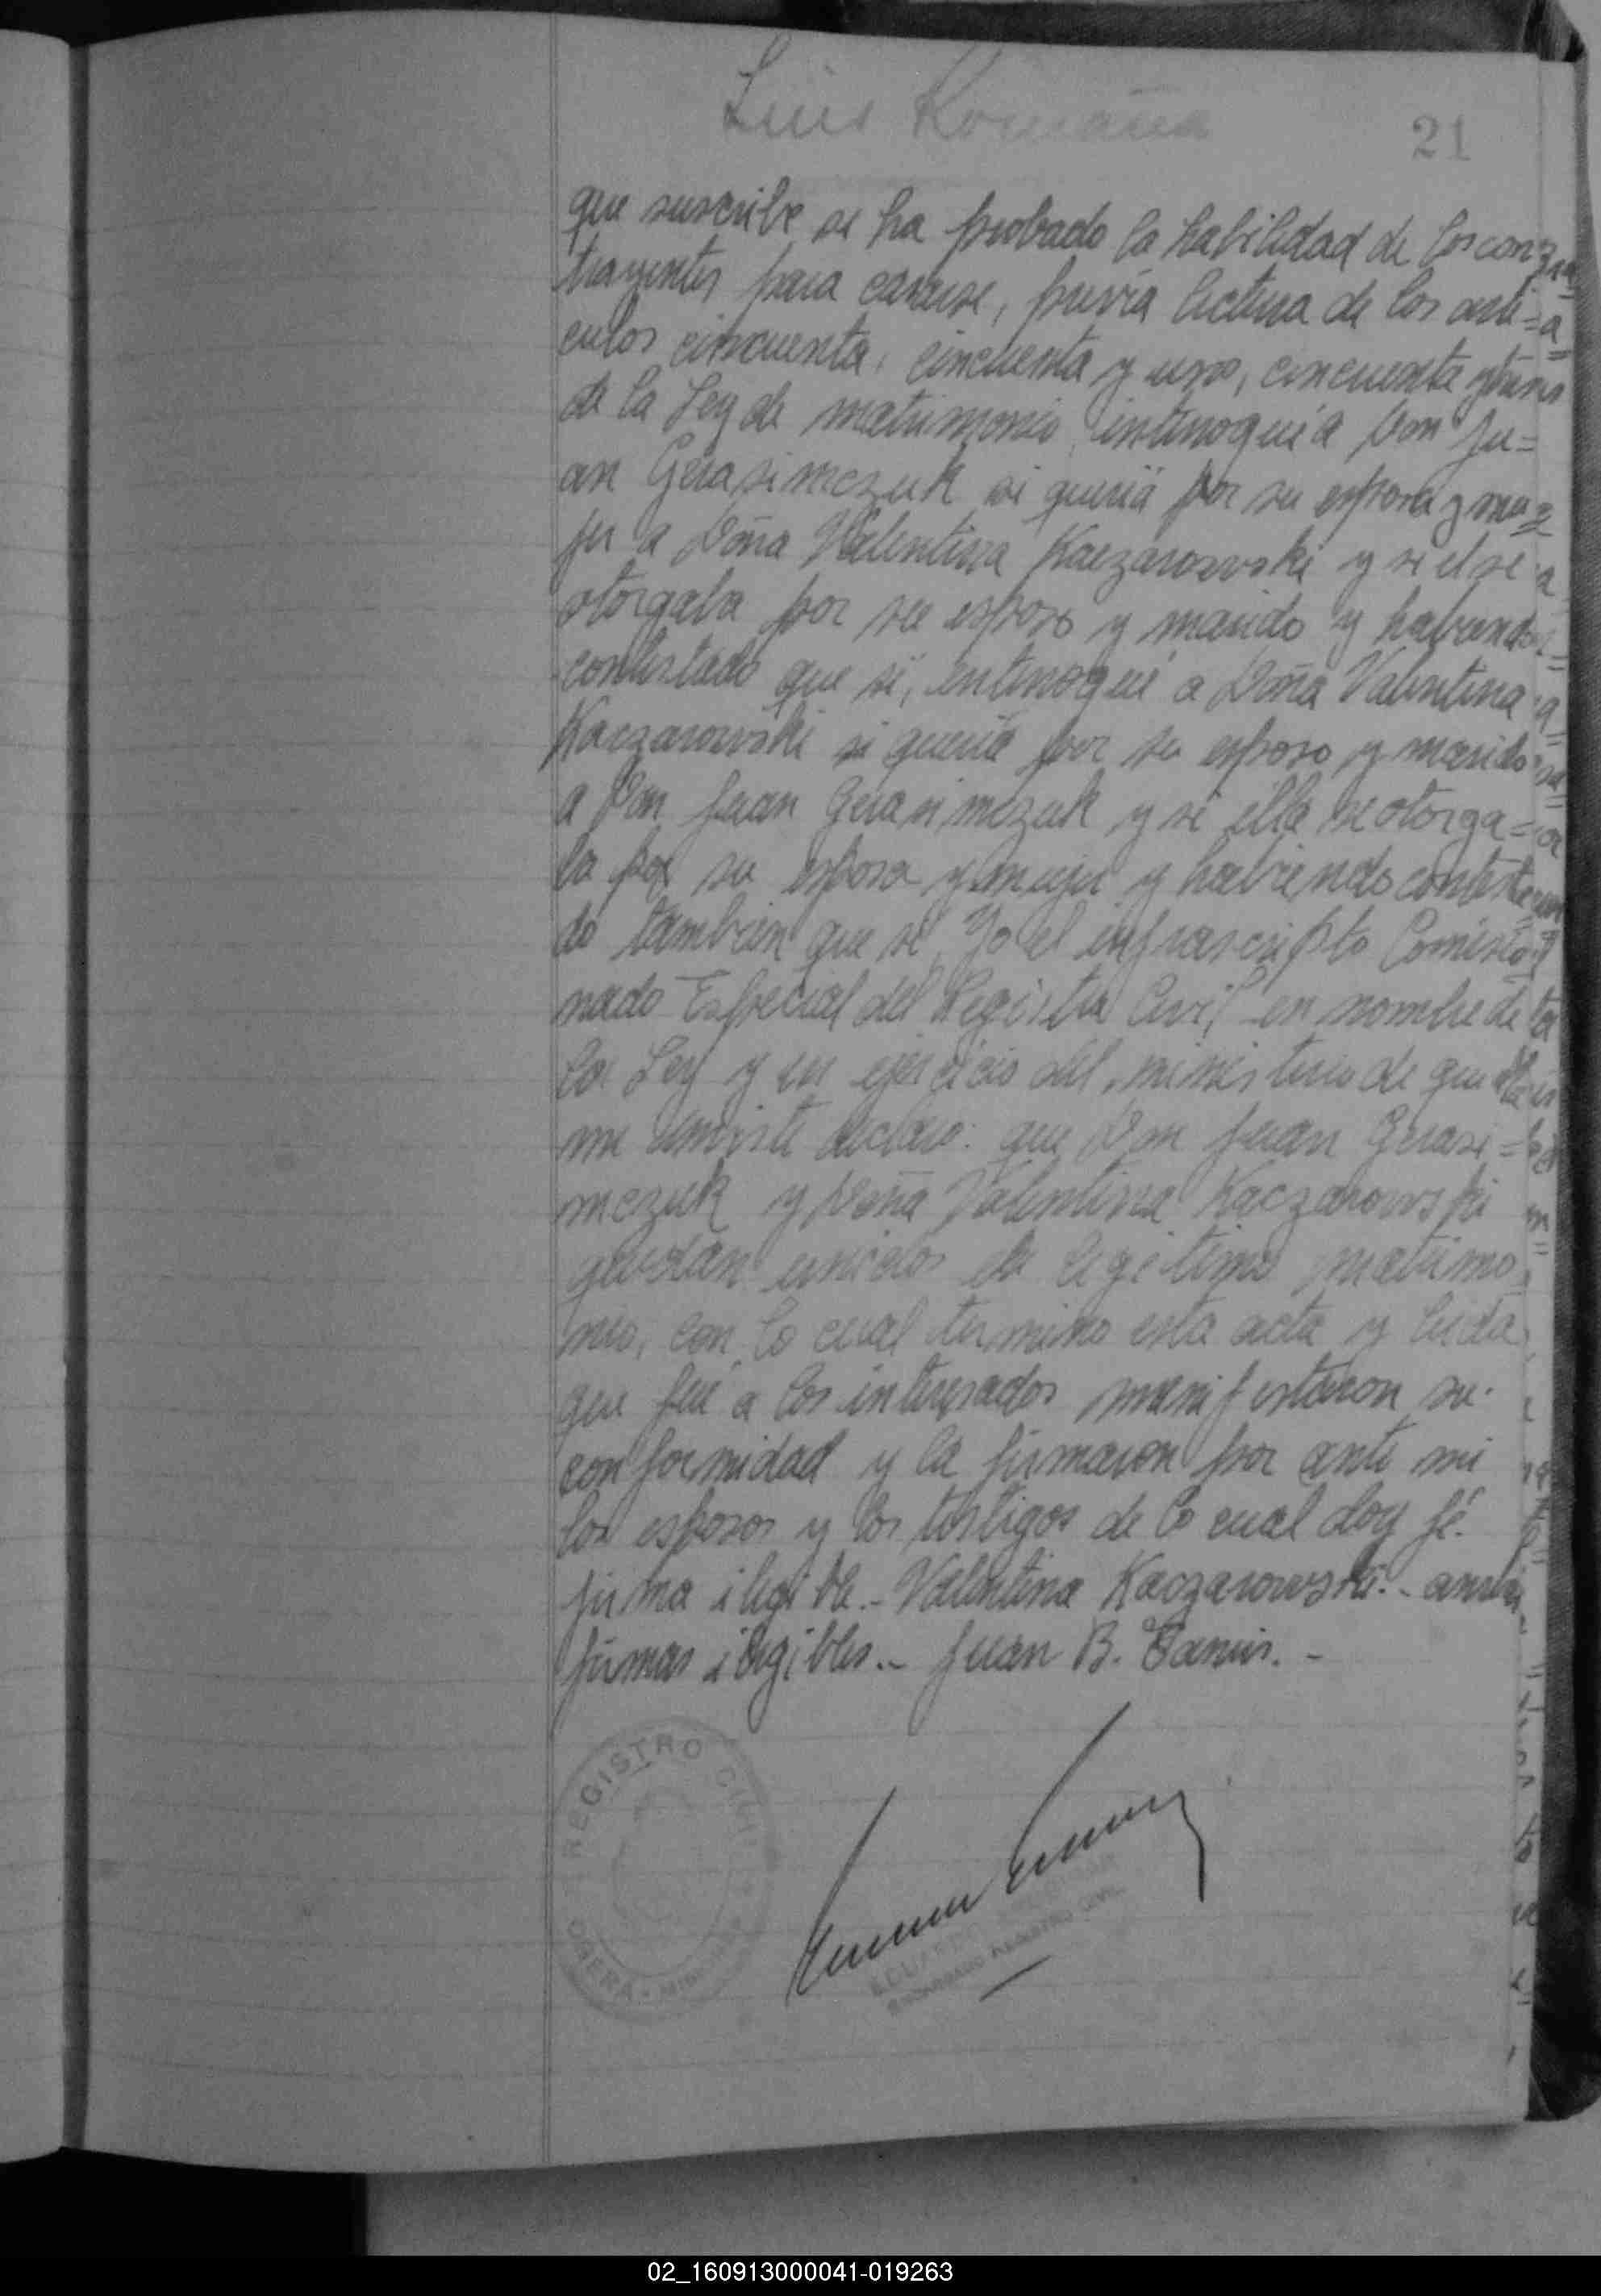 Luis Romaña
21
que suscribe se ha probado la habilidad de los con=
trayentes para casarse, previa lectura de los artí=
culos cincuenta, cincuenta y uno, cincuenta y tres
de la Ley de matrimonio, interrogué a Don Ju=
an Gerasimczuk si quería por su esposa y mu=
jer a Doña Valentina Kaczarowski y si el se
otorgaba por su esposo y marido y habiendo
contestado que si, interrogué a Doña Valentina
Kaczarowski si quería por su esposo y marido
a Don Juan Gerasimczuk y si ella se otorga=
ba por su esposa y mujer y habiendo contesta
do tambien que si, Yo el infrascripto Comisio=
nado Especial del Registro Civil en nombre de
la Ley y en ejercicio del ministerio de que
me inviste declaro: que Don Juan Gerasi=
mczuk y Doña Valentina Kaczarowski
quedan unidos en legitimo matrimo
nio, con lo cual termino esta acta y leida
que fué a los interesados manifestaron su
conformidad y la firmaron por ante mi
los esposos y los testigos de lo cual doy fé.
firma ilegible.- Valentina Kaczarowski.- ambas
firmas ilegibles.- Juan B.
REGISTRO CIVIL
OBERA - MISIONES
ENCARGADO REGISTRO CIVIL
02_160913000041-019263